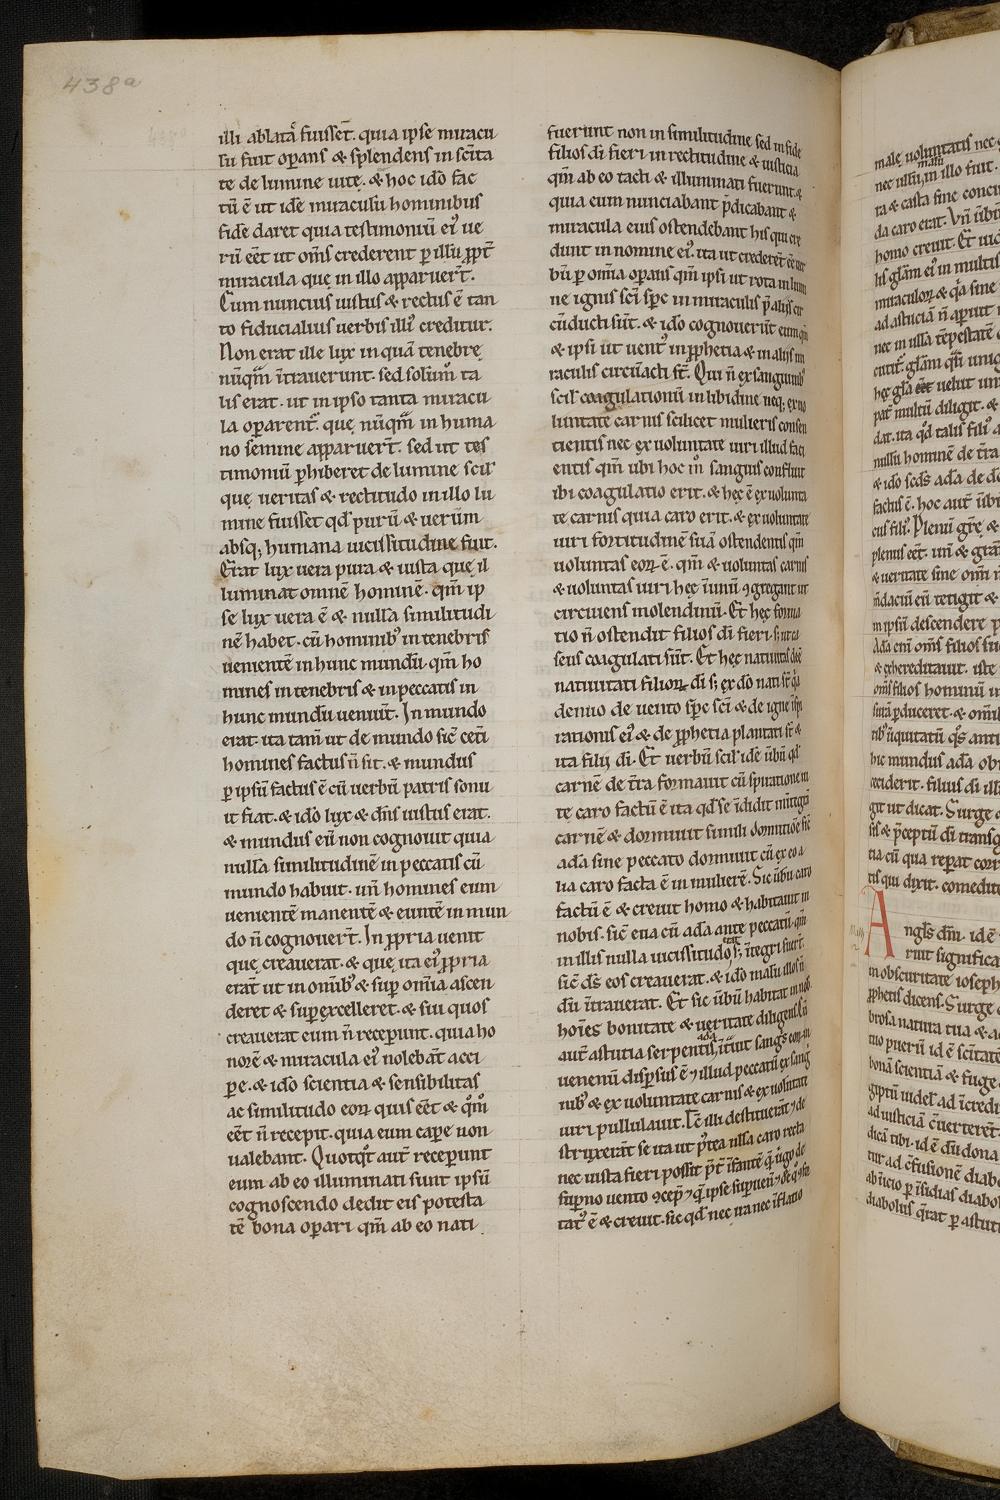 438a
illi ablata᷃ fuisset̄. quia ipse miracu
lū fuit oꝑans & splendens in sc̄ita
te de lumine uite. & hoc ido fac
tū ē ut idē miraculū hominibus
fidē daret quia testimoniū eiꝰ ue
rū eēt ut om̄s crederent ꝑ illū ꝓpt̄
miracula que in illo apparuer̄t.
Cum nuncius iustus & rectus ē tan
to fiducialius uerbis illiꝰ creditur.
Non erat ille lux in quā tenebre
nūqm̄ ītrauerunt. sed solūm ta
lis erat. ut in ipso tanta miracu
la oꝑarent̄. que nūqm̄ in huma
no semine apparuer̄t. sed ut tes
timoniū ꝑhiberet de lumine scil'
que ueritas & rectitudo in illo lu
mine fuisset qd̄ purū & uerūm
absq; humana uicissitudine fuit.
Erat lux uera pura & iusta que il
luminat omnē hominē. qm̄ ip
se lux uera ē & nulla similitudi
nē habet. cū hominibꝰ in tenebris
uenientē in hunc mundū. qm̄ ho
mines in tenebris & in peccatis in
hunc mundū uenūt. In mundo
erat. ita tam̄ ut de mundo sic̄ ceti
homines factus n̄ sit. & mundus
ꝑ ipsū factus ē cū uerbū patris sonu
it fiat. & ido lux & dn̄s iustus erat.
& mundus eū non cognouit quia
nulla similitudinē in peccatis cū
mundo habuit. un̄ homines eum
uenientē manentē & euntē in mun
do n̄ cognouer̄t. In ꝓpria uenit
que creauerat. & que ita eiꝰ ꝓpria
erāt ut in omībꝰ & suꝑ omīa ascen
deret & suꝑexcelleret. & sui quos
creauerat eum n̄ receꝑunt. quia ho
norē & miracula eiꝰ nolebāt acci
ꝑe. & ido scientia & sensibilitas
ac similitudo eoꝝ quis eēt & qm̄
eēt n̄ recepit. quia eum caꝑe non
ualebant. Quotqt̄ aut̄ receꝑunt
eum ab eo illuminati sunt ipsū
cognoscendo dedit eis potesta
tē bona oꝑari qm̄ ab eo nati
fuerunt non in similitudine sed in fide
filios dī fieri in rectitudine & iusticia
qm̄ ab eo tacti & illuminati fuerunt. &
quia eum nunciabant p̄dicabant &
miracula eius ostendebant his qui cre
dunt in nomine eiꝰ. ita ut crederēt eē
bū ꝑ omīa oꝑans qm̄ ipsi ut rota in
ne ignis sc̄i sp̄c in miraculis p̄ alijs
cūducti sūt. & ido cognouer̄t eum
& ipsi ut uentꝰ in ꝓphetia & in alijs mi
raculis circūacti st̄. Qui n̄ ex sanguinibꝰ
scil' coagulationū in libidine neq; ex uo
luntate carnis scilicet mulieris consen
tientis nec ex uoluntate uiri illud faci
entis qm̄ ubi hoc in sanguis confluit
ibi coagulatio erit. & hec ē ex uolunta
te carnis quia caro erit. & ex uoluntate
uiri fortitudinē suā ostendentis qm̄
uoluntas eoꝝ ē. qm̄ & uoluntas carnis
& uoluntas uiri hec īunū ꝯgregant ut
circuiens molendinū. Et hec forma
tio n̄ ostendit filios dī fieri
seus coagulati sūt. Et hec natiuitas deē
natiuitati filioꝝ dī s; ex dō nati st̄ qa
denuo de uento sp̄c sc̄i & de igne
rationis eiꝰ & de ꝓphetia plantati st̄ &
ita filij dī. Et uerbū scil' idē ūbū qd̄
carnē de tr̄a formauit cū spiratione
te caro factū ē ita qd̄ se īdidit
carnē & dormiuit simili dormitiōē sic̄
ada sine peccato dormiuit cū ex eo a
lia caro facta ē in mulierē. Sic ūbū caro
factū ē & creuit homo & habitauit in
nobis. sic̄ eua cū ada ante peccatū. qm̄
in illis nulla uicissitudo erat s; ītegri fuer̄t.
sic̄ ds̄ eos creauerat. & ido malū illos n̄
dū ītrauerat. Et sic ūbū habitat in nob
hoīes bonitate & ueritate diligens. Cū
aut̄ astutia serpentis ada ītuit
uenenū dispsus ē ⁊ illud peccatū ex sang
nibꝰ & ex uoluntate carnis & ex uoluntate
uiri pullulauit. illi destituerāt ⁊ de
struxerāt se ita ut p̄tea ulla caro recta
nec iusta fieri possit p̄t īfantē q̄ uirgo de
suꝑno uento ꝯcep̄
tatꝰ ē & creuit. sic qd̄ nec ira nec īflatio
male uoluntatis nec
nec ullū in illo fuit.
ta & casta sine
da caro erat. Un̄ ūbū
homo creuit. Et
his glam̄ eiꝰ in multis
miraculoꝝ & qa sine
ad astuciā n̄ aꝑuit
nec in ulla tēpestatē
glam̄ qsi
hec gla
pat̄ multū diligit. &
dat. ita qd̄ talis filiꝰ
nullū hominē de tr̄a
& ido scds̄ ada de
factus ē. hoc aut̄ ūbū
cuiꝰ filiꝰ. Plenū gr̄e &
plenus eēt. un̄ & gr̄am
& ueritate sine om̄i
eū tetigit &
in ipsū descendere
Ada eni om̄s filios
& exhereditauit. iste
om̄s filios hominū
ꝑduceret. &
hic mundus ada
ceciderit. filius dī
git ut dicat. Surge
& p̄ceptū dī
tia cū qua reparat
tis qui dixit.
Angls̄ dn̄i. id ē
runt significa
in obscuritate ioseph
ꝓphetis dicens. Surge
brosa natura tua &
tuo puerū id ē sc̄itatē
bonā scientiā & fuge
giptū uidel' ad
ad iusticiā ꝯuerterēt.
dicā tibi. id ē dū dona
tur ad ꝯfusionē
ab īicio ꝑ īsidias diabo
diabolus qrat ꝑ astuti